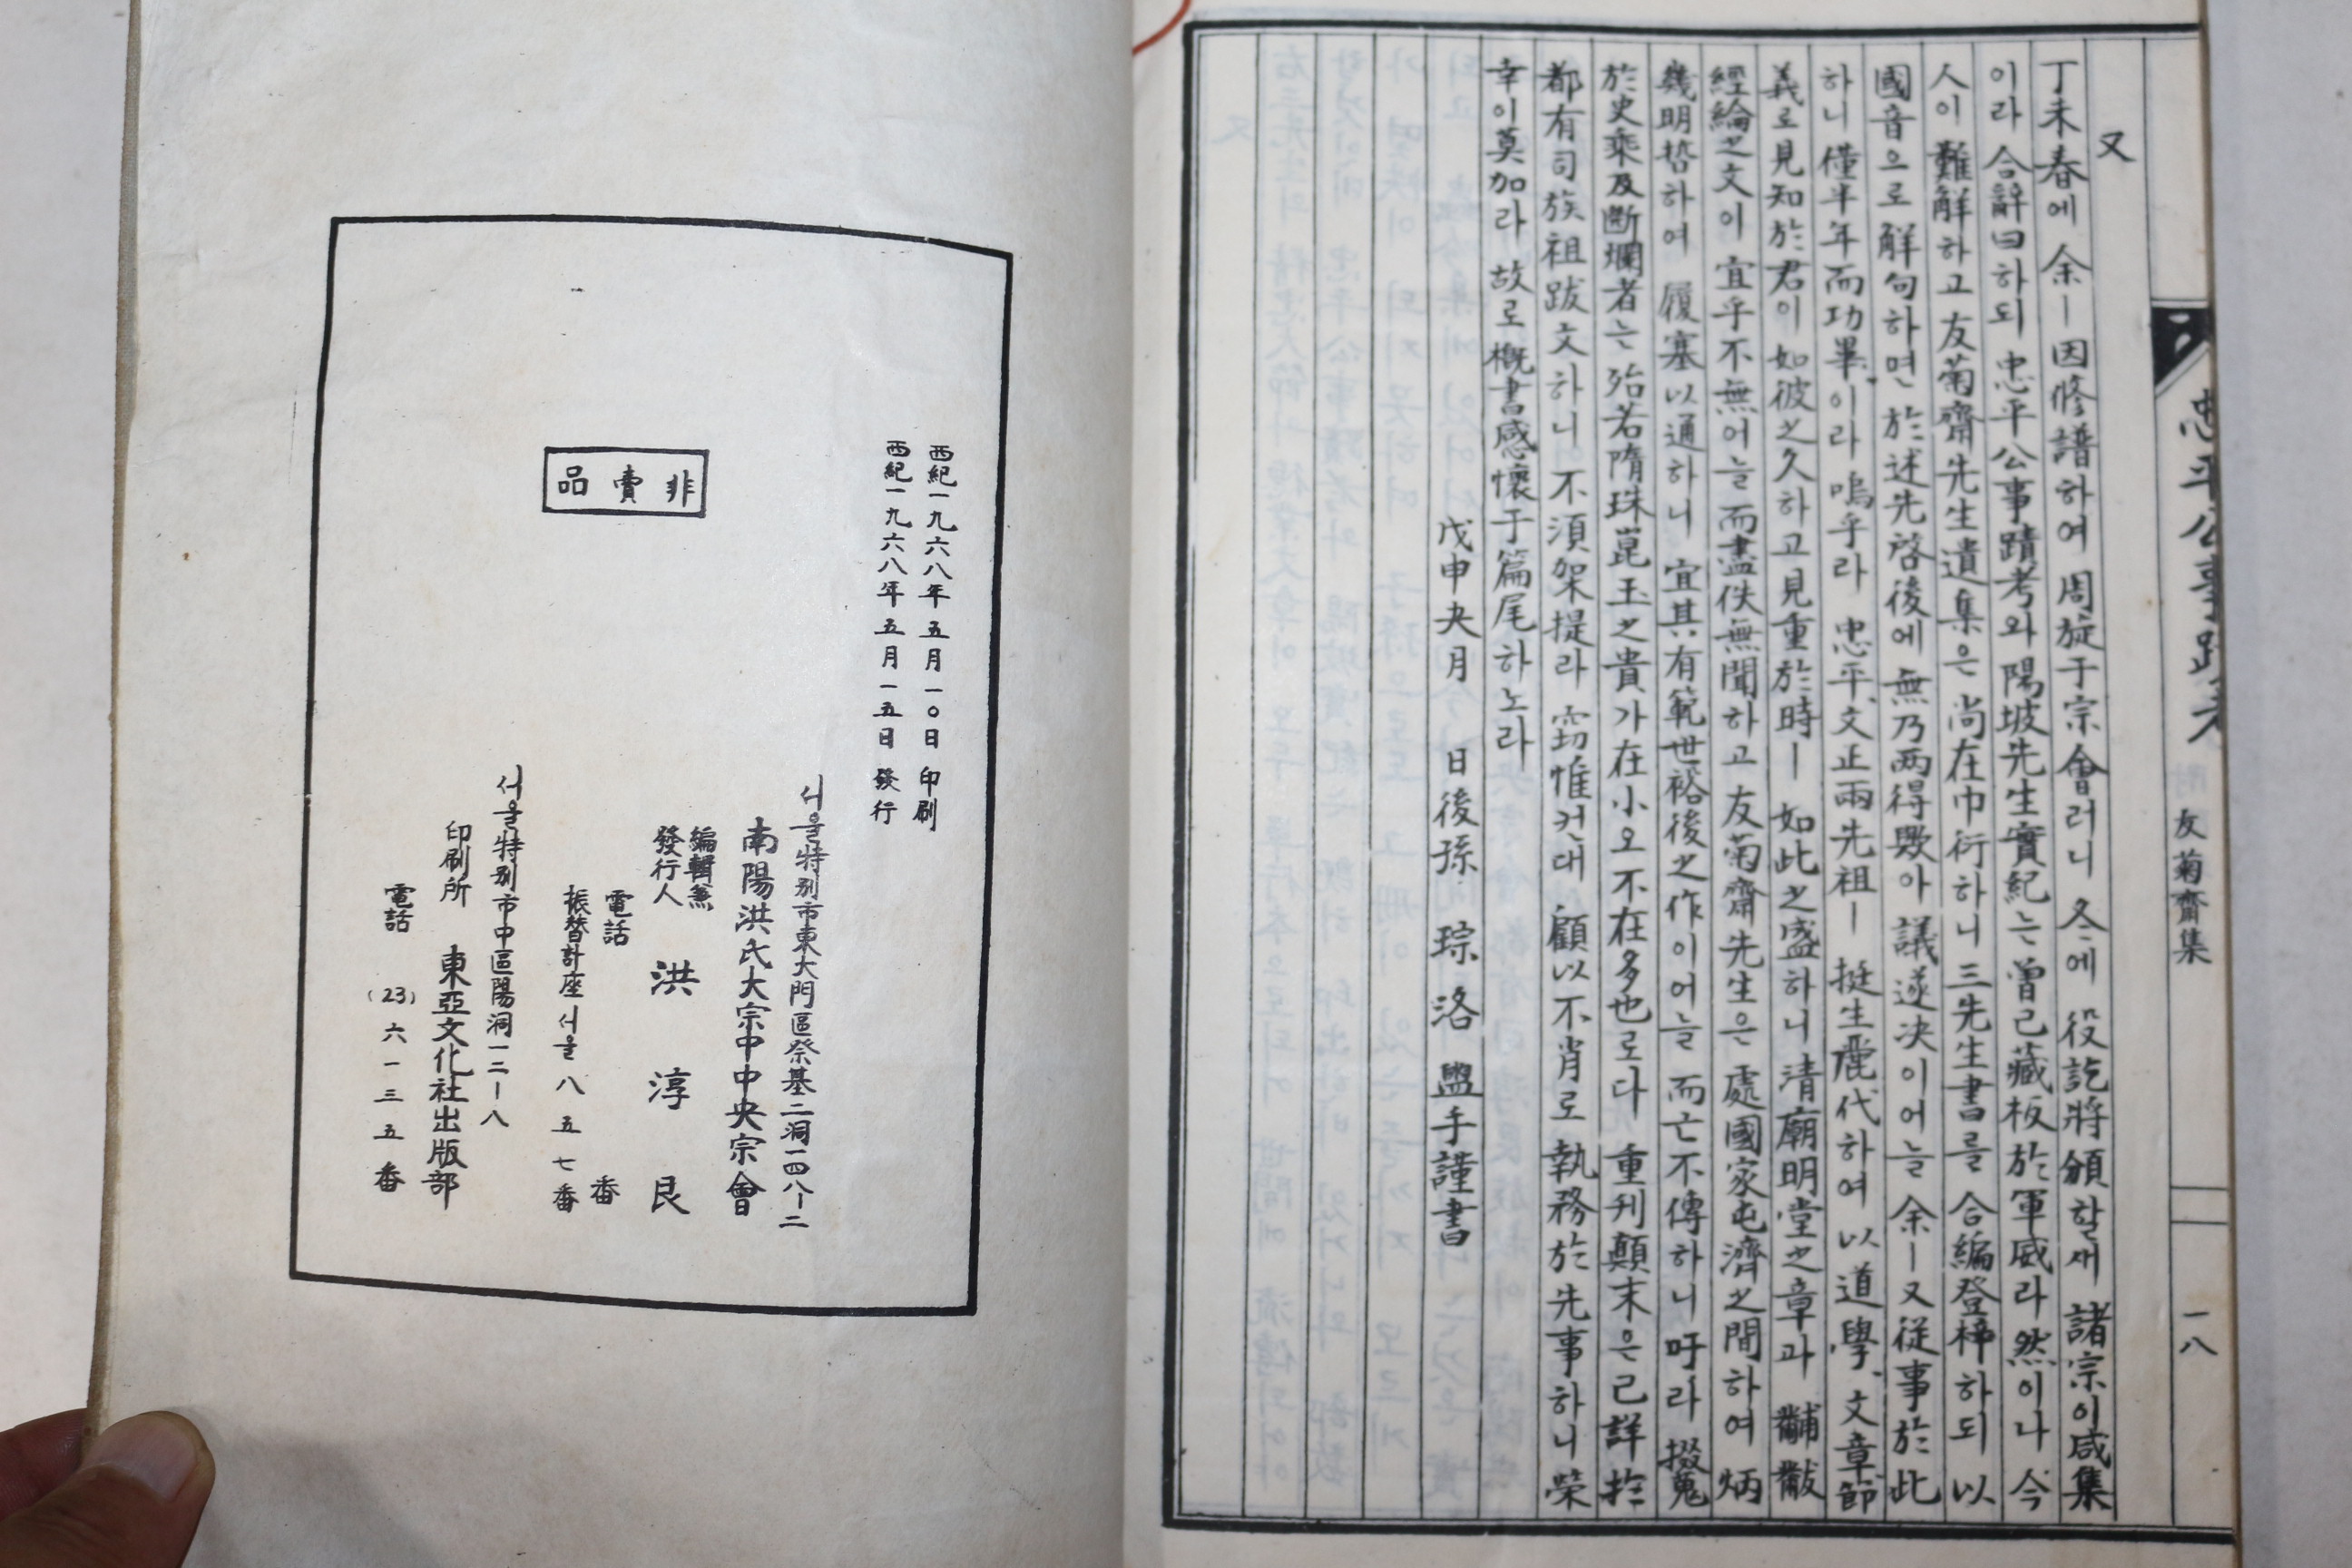 又
丁未春에 余ㅣ因修譜하여 周旋于宗會러니 冬에 役訖將頒할새 諸宗이咸集
이라 合辭曰하되 忠平公事蹟考와陽坡先生實紀는 曾已藏板於軍威라然이나 今
人이 難解하고 友菊齋先生遺集은 尚在巾衍하니 三先生書를 合編登梓하되 以
國音으로 解句하면 於述先啓後에 無乃兩得歟아 議遂決이어늘 余ㅣ又従事於此
하니 僅半年而功畢이라 嗚乎라 忠平、文正兩先祖ㅣ 挺生麗代하여 以道學、文章節
義로見知於君이 如彼之久하고見重於時ㅣ 如此之盛하니 清廟明堂之章과 黼黻
經綸之文이 宜乎不無어늘 而盡佚無聞하고 友菊齋先生은 處國家屯濟之間하여 炳
幾明哲하여 履塞以通하니 宜其有範世裕後之作이어늘 而亡不傳하니 吁라 掇蒐
於史乘及斷爛者는 殆若隋珠崑玉之貴가在小오不在多也로다 重刊顛末은已詳於
都有司族祖跋文하니 不須架提라 窃惟컨대 顧以不肖로 執務於先事하니榮
幸이莫加라 故로概書感懷于篇尾하노라
戊申夬月 日後孫 琮洛 盥手謹書
忠平公事蹟考 附 友菊齋集 一八
西紀一九六八年五月一〇日 印刷
西紀一九六八年五月一五日 發行
非賣品
서울特別市東大門區祭基二洞一四八ー二
南陽洪氏大宗中中央宗會
編輯兼
發行人 洪淳艮
電話 番
振替計座서울八五七番
서울特別市中區陽洞一二ー八
印刷所 東亞文化社出版部
電話 (23)六一三五番